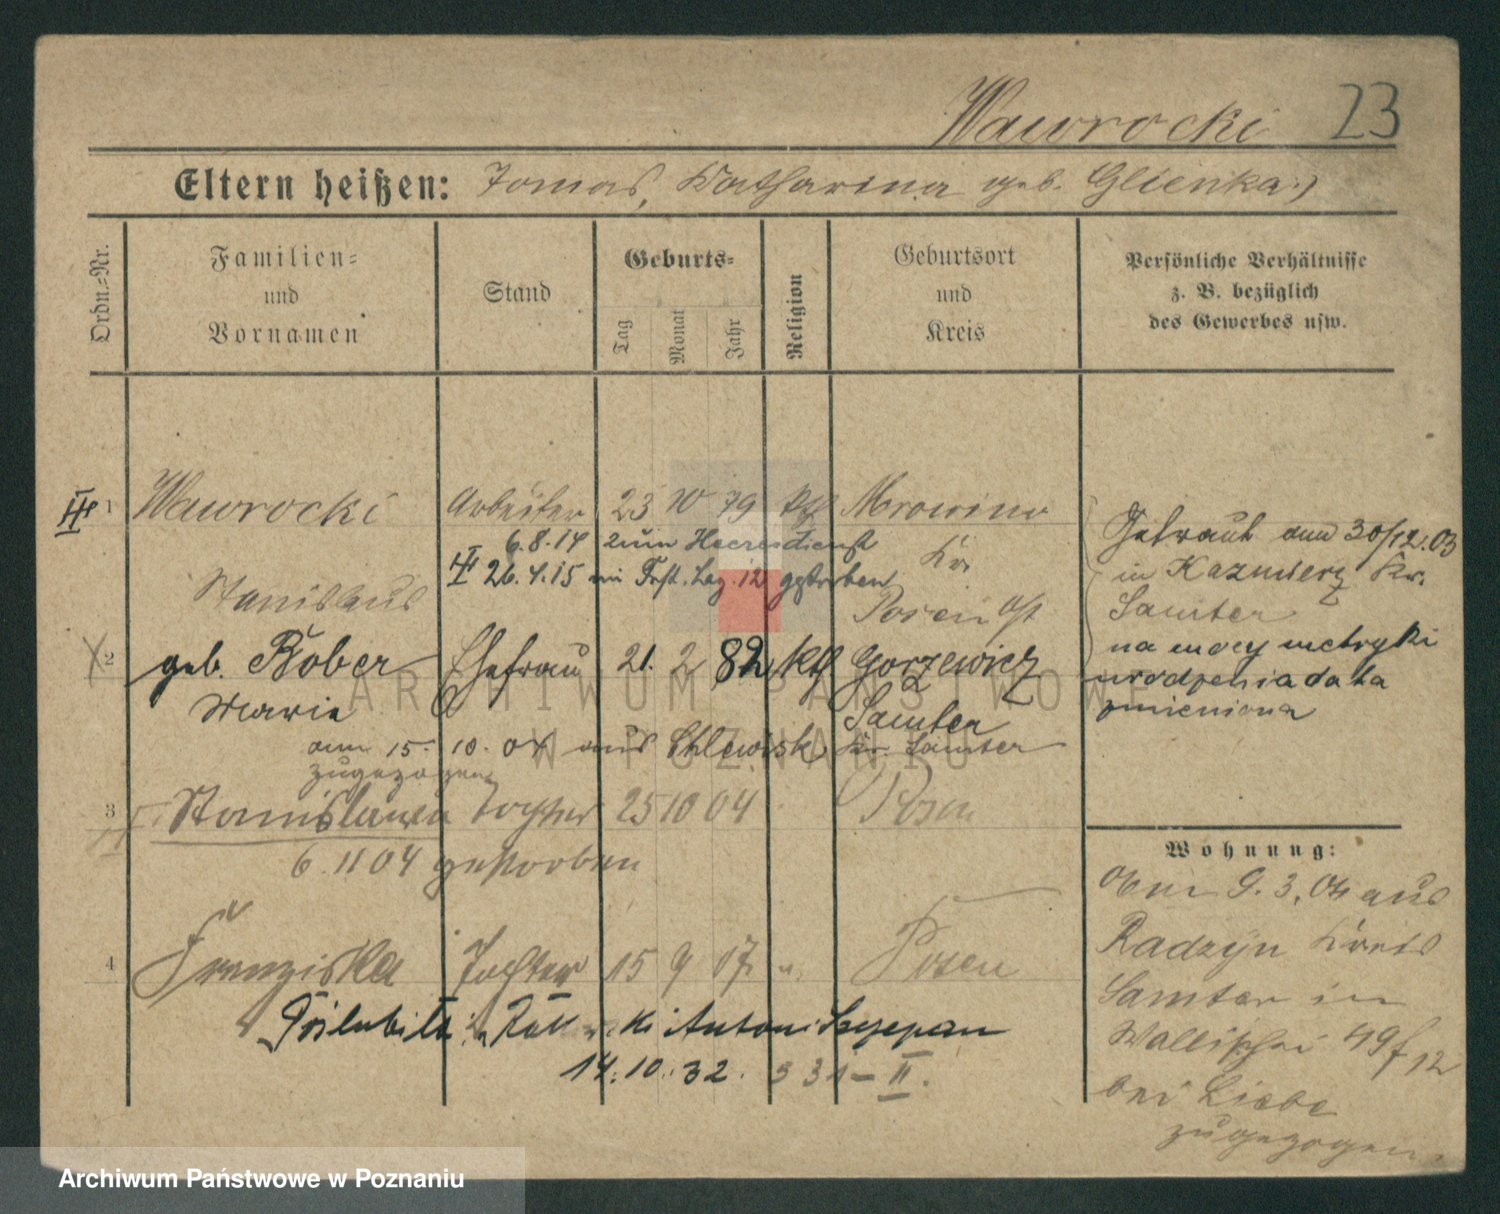 Wawrocki 23
Eltern heißen: Tomas, Katharina geb. Glienka
Ordn.-Nr.
Familien-
und
Vornamen
Stand
Geburts-
Tag
Monat
Jahr
Religion
Geburtsort
und
Kreis
Persönliche Verhältnisse
z. B. bezüglich
des Gewerbes usw.
1 Wawrocki Arbeiter 23 10 79 kth Mrowino
6.8.14 zum Heeresdienst Kr.
26.4.15 im Fest. Laz. 12 gestorben
Stanislaus Posen Ost
Getraut am 30/12.03
in Kazmierz Kr.
Samter
2 geb. Bober Ehefrau 21. 2 82 kth Gorzewicz
Maria Samter
na mocy metryki
urodzenia data
zmieniona
am 15. 10. 04 aus kr. Samter
zugezogen
3 Stanislawa Tochter 25 10 04 Posen
6.11 04 gestorben
Wohnung:
9.3.04 aus
Radzyn Kreis
Samter in
Wallischei 49/12
bei Liebe
zugezogen.
4 Franziska Tochter 15 9 07 " Posen
Poślubiła Antoni Szczepan
14.10.32. 531-II.
ARCHIWUM PAŃSTWOWE
W POZNANIU
Archiwum Państwowe w Poznaniu